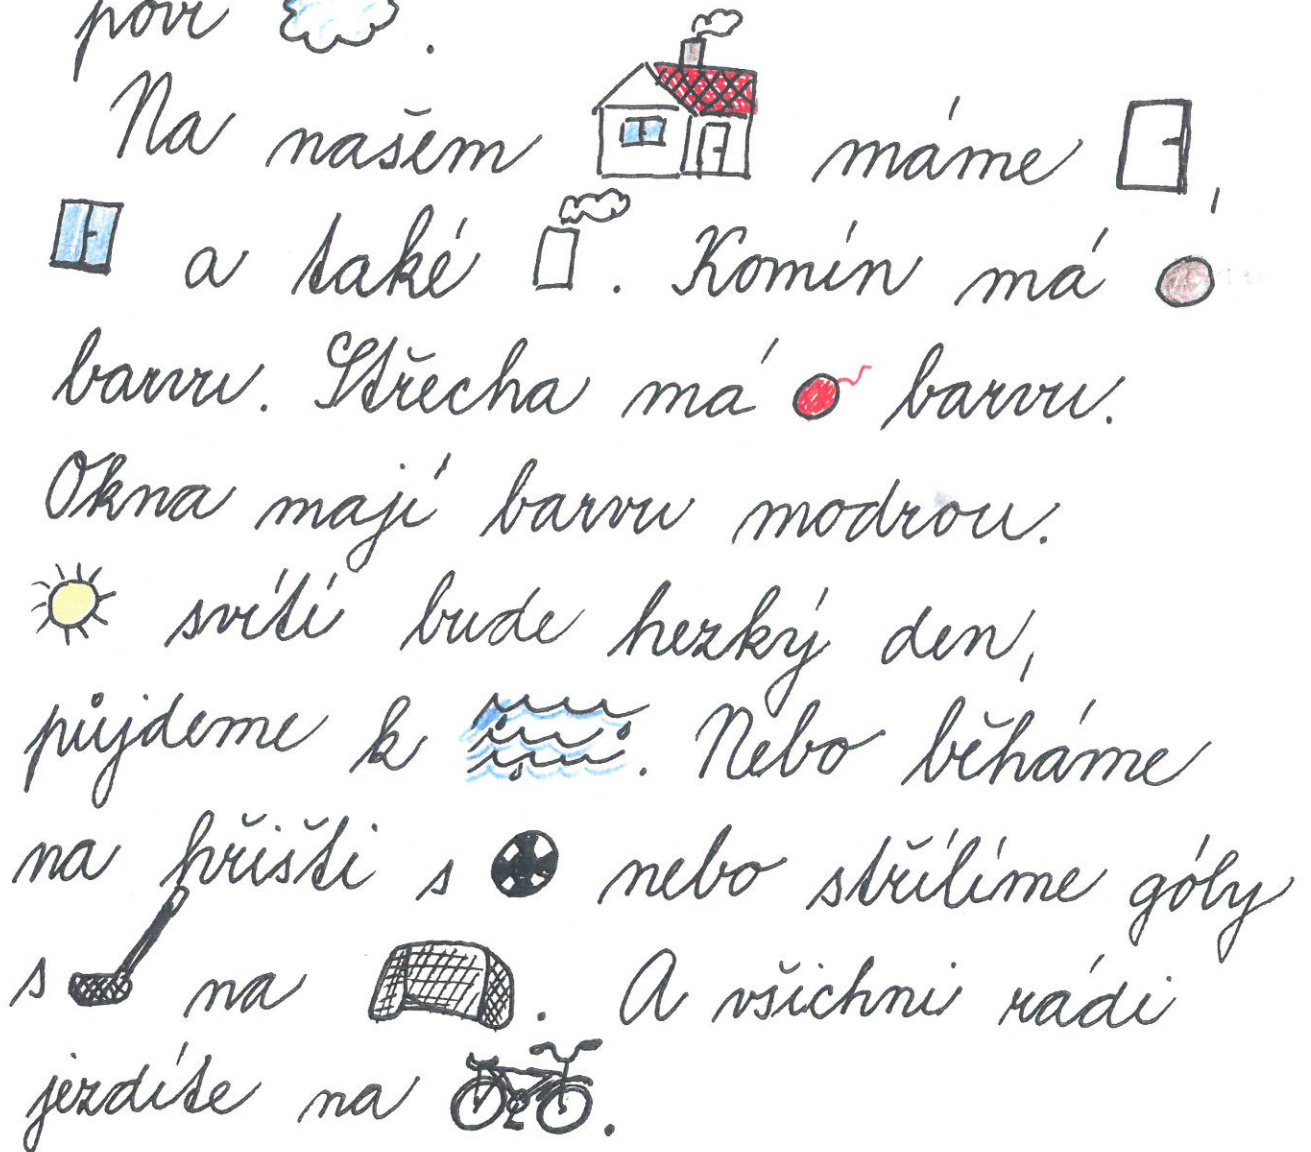 .
Na našem máme ,
a také . Komín má
barvu. Střecha má barvu.
Okna mají barvu modrou.
svítí bude hezký den,
půjdeme k . Nebo běháme
na hřišti s nebo střílíme góly
s na . A všichni rádi
jezdíte na .